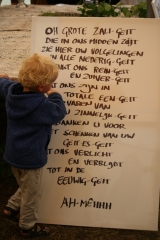 OH GROTE ZALI-GEIT
DIE IN ONS MIDDEN ZIJT
ZIE HIER UW VOLGELINGEN
IN ALLE NEDERIG-GEIT
ONS REIN-GEIT
EN ZUIVER-GEIT
ONS ZIJN IN
TOTALE EEN-GEIT
HABEN VAN
ZINNELIJK-GEIT
DANKEN U VOOR
SCHENKEN VAN UW
GEIT-ES-GEIT
ONS VERLICHT
EN VERBLIJDT
TOT IN DE
EEUWIG-GEIT
AH-MÈHHH